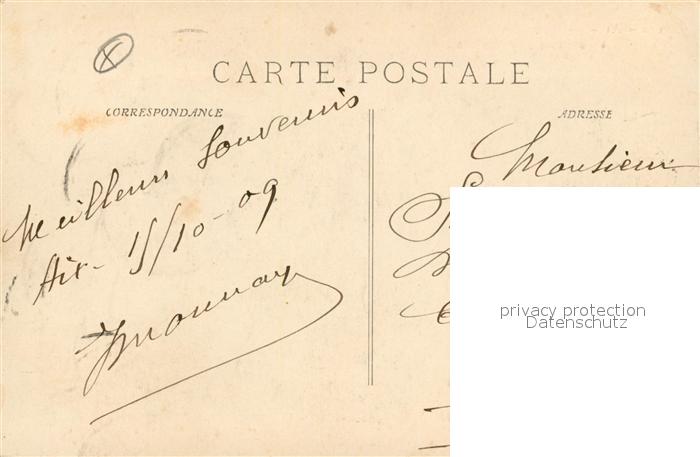 CARTE POSTALE
CORRESPONDANCE
ADRESSE
Meilleurs Souvenirs
Aix - 15/10-09
Monsieur
privacy protection
Datenschutz